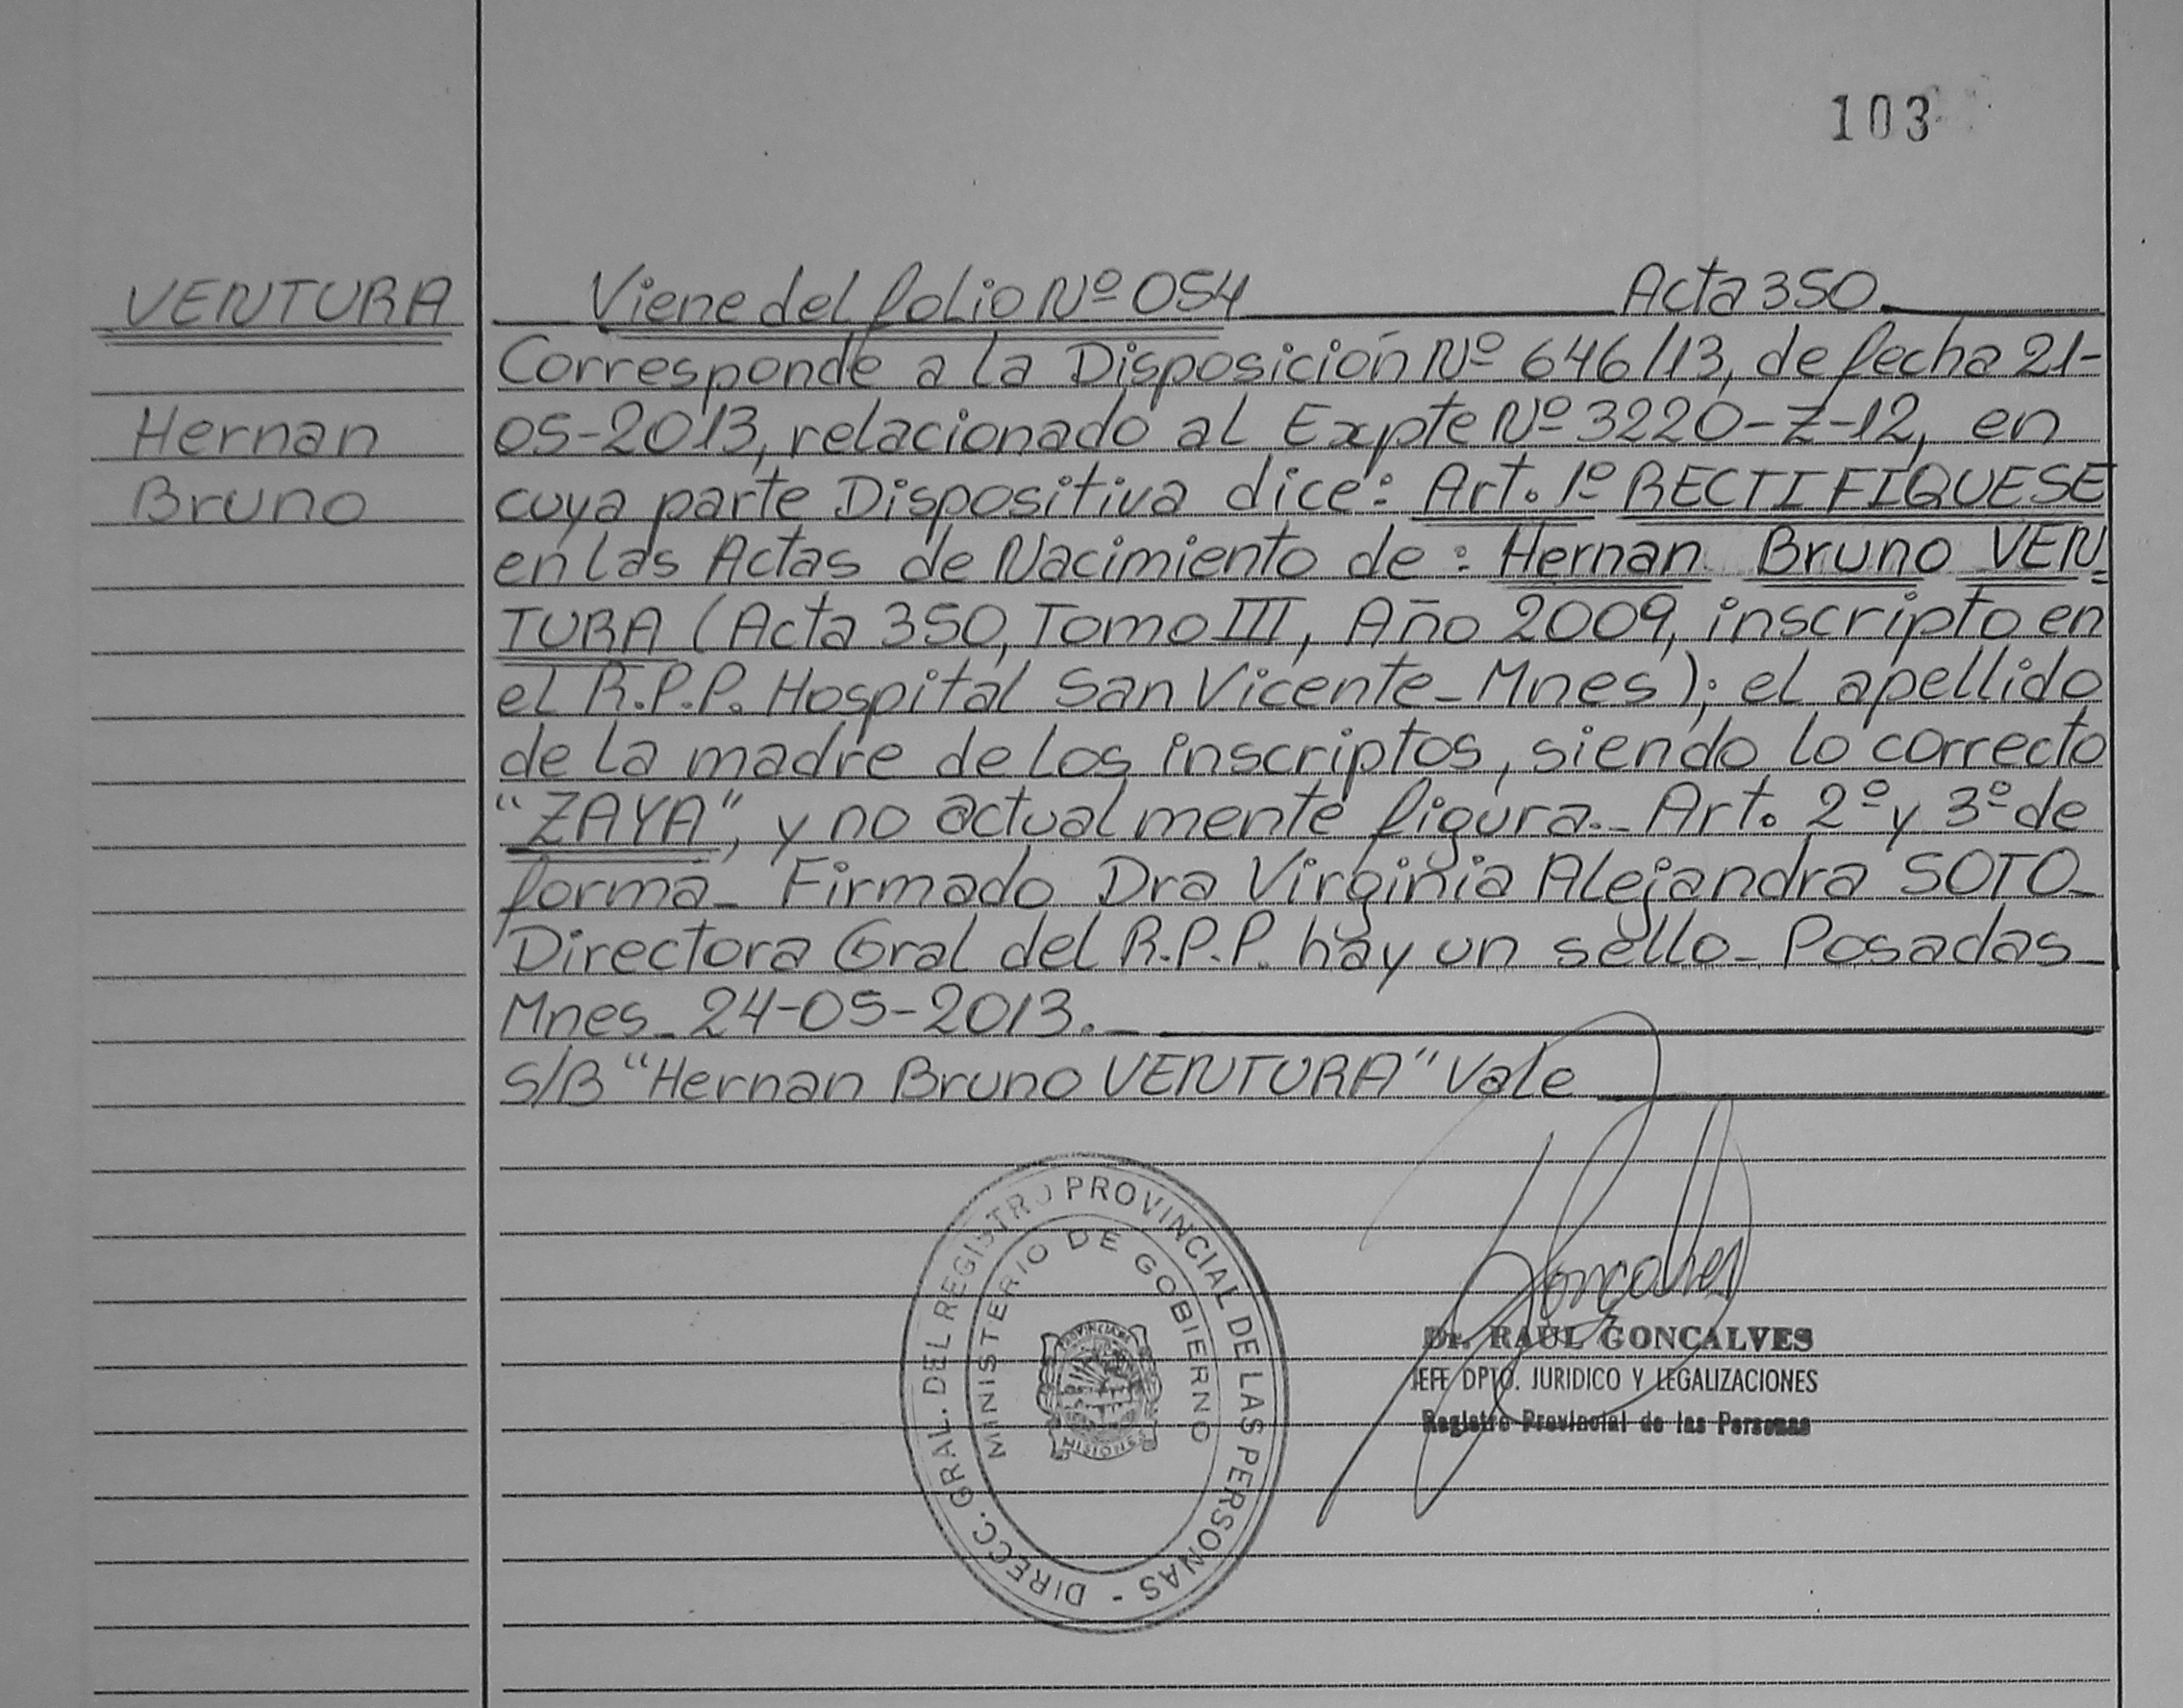 103
VENTURA
Hernan
Bruno
Viene del folio Nº 054 Acta 350
Corresponde a la Disposición Nº 646/13, de fecha 21-
05-2013, relacionado al Expte Nº 3220-Z-12, en
cuya parte Dispositiva dice: Art. 1º RECTIFIQUESE
en las Actas de Nacimiento de: Hernan Bruno VEN-
TURA (Acta 350, Tomo III, Año 2009, inscripto en
el R.P.P. Hospital San Vicente-Mnes); el apellido
de la madre de los inscriptos, siendo lo correcto
"ZAYA", y no actualmente figura.- Art. 2º y 3º de
forma- Firmado Dra Virginia Alejandra SOTO-
Directora Gral del R.P.P. hay un sello- Posadas-
Mnes- 24-05-2013.-
S/B "Hernan Bruno VENTURA" Vale
DIRECC. GRAL. DEL REGISTRO PROVINCIAL DE LAS PERSONAS -
MINISTERIO DE GOBIERNO
PROVINCIA DE
MISIONES
Gonçalves
Dr. RAUL GONCALVES
JEFE DPTO. JURIDICO Y LEGALIZACIONES
Registro Provincial de las Personas